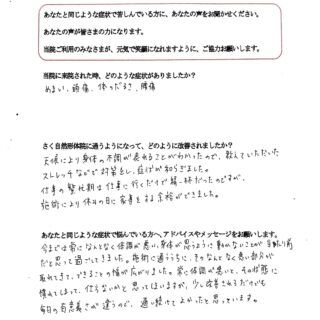 あなたと同じような症状で苦しんでいる方に、あなたの声をお聞かせください。
あなたの声が皆さまの力になります。
当院ご利用のみなさまが、元気で笑顔になれますように、ご協力お願いします。
当院に来院された時、どのような症状がありましたか？
めまい、頭痛、体のだるさ、腰痛
さく自然形体院に通うようになって、どのように改善されましたか？
天候により身体の不調が表れることがわかったので、教えていただいた
ストレッチなどで対策をし、症状が和らぎました。
仕事の繁忙期は仕事に行くだけで精一杯だったのですが、
施術により休みの日に家事をする余裕ができました。
あなたと同じような症状で悩んでいる方へ、アドバイスやメッセージをお願いします。
今までは常になんとなく体調が悪い、身体が思うように動かないことが当り前
だと思って過ごしてきました。施術に通ううちに、そのなんとなく悪い部分が
表れてきて、できることの幅が広がりました。常に体調が悪いと、その状態に
慣れてしまって、仕方ないかと思ってしまいますが、少し改善されるだけでも
毎日の有意義さが違うので、通い続けてよかったと思っています。